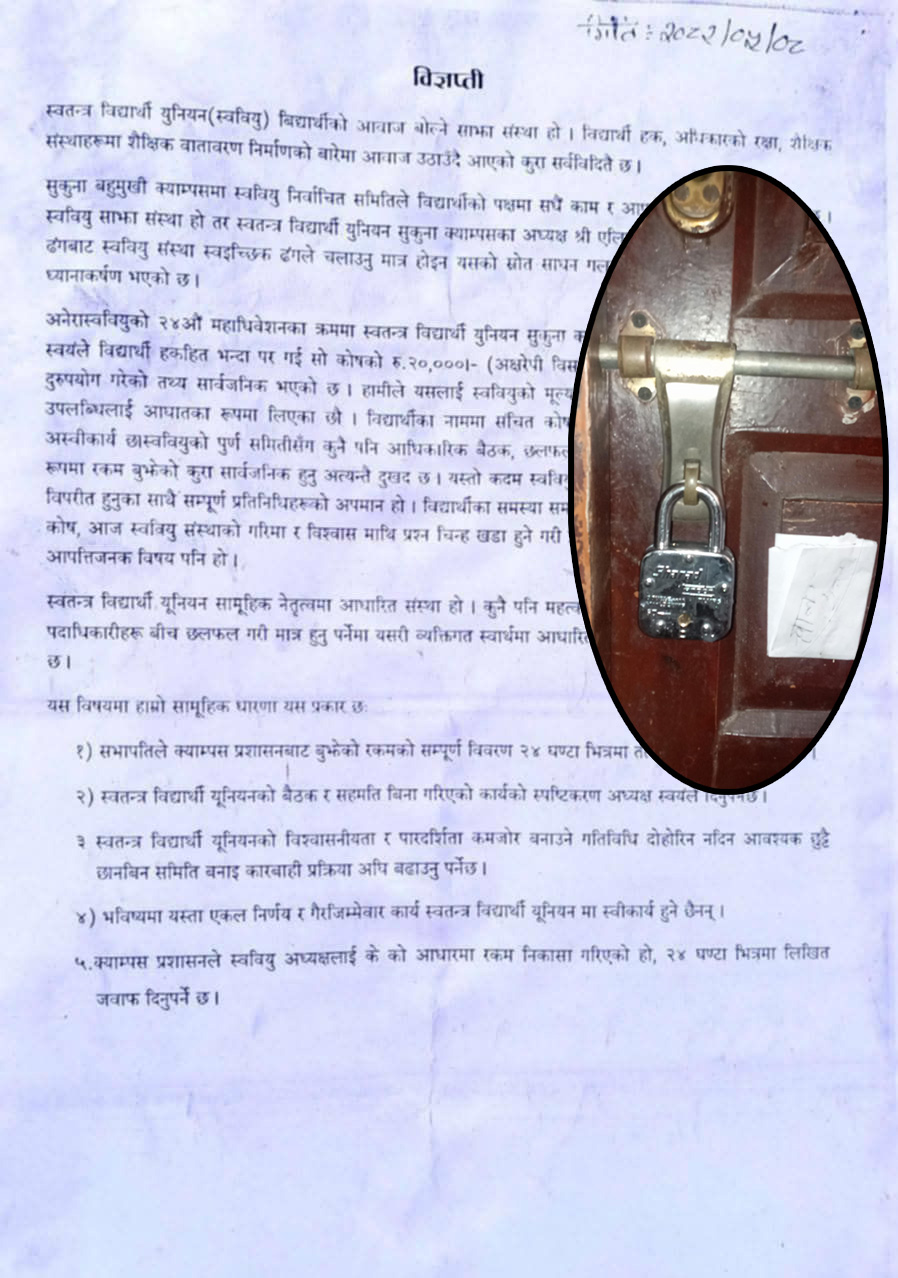 मिति: २०८२/०५/०८
विज्ञप्ती
स्वतन्त्र विद्यार्थी युनियन(स्ववियु) बिद्यार्थीको आवाज बोल्ने साझा संस्था हो । विद्यार्थी हक, अधिकारको रक्षा, शैक्षिक
संस्थाहरूमा शैक्षिक वातावरण निर्माणको बारेमा आवाज उठाउँदै आएको कुरा सर्वविदितै छ ।
सुकुना बहुमुखी क्याम्पसमा स्ववियु निर्वाचित समितिले विद्यार्थीको पक्षमा सधैं काम र
स्ववियु साझा संस्था हो तर स्वतन्त्र विद्यार्थी युनियन सुकुना क्याम्पसका अध्यक्ष श्री
ढंगबाट स्ववियु संस्था स्वइच्छिक ढंगले चलाउनु मात्र होइन यसको स्रोत साधन
ध्यानाकर्षण भएको छ ।
अनेरास्ववियुको २४औं महाधिवेशनका क्रममा स्वतन्त्र विद्यार्थी युनियन सुकुना
स्वयंले विद्यार्थी हकहित भन्दा पर गई सो कोषको रु.२०,०००।- (अक्षरेपी
दुरुपयोग गरेको तथ्य सार्वजनिक भएको छ । हामीले यसलाई स्ववियुको
उपलब्धिलाई आघातका रूपमा लिएका छौं । विद्यार्थीका नाममा संचित
अस्वीकार्य छास्ववियुको पुर्ण समितीसँग कुनै पनि आधिकारिक बैठक,
रूपमा रकम बुझेको कुरा सार्वजनिक हुनु अत्यन्तै दुखद छ । यस्तो कदम
विपरीत हुनुका साथै सम्पूर्ण प्रतिनिधिहरूको अपमान हो । विद्यार्थीका समस्या
कोष, आज स्ववियु संस्थाको गरिमा र विश्वास माथि प्रश्न चिन्ह खडा हुने गरी
आपत्तिजनक विषय पनि हो ।
स्वतन्त्र विद्यार्थी यूनियन सामूहिक नेतृत्वमा आधारित संस्था हो । कुनै पनि
पदाधिकारीहरू बीच छलफल गरी मात्र हुनु पर्नेमा यसरी व्यक्तिगत स्वार्थमा
छ ।
यस विषयमा हाम्रो सामूहिक धारणा यस प्रकार छः
१) सभापतिले क्याम्पस प्रशासनबाट बुझेको रकमको सम्पूर्ण विवरण २४ घण्टा भित्रमा
२) स्वतन्त्र विद्यार्थी यूनियनको बैठक र सहमति बिना गरिएको कार्यको स्पष्टिकरण अध्यक्ष स्वयंले दिनुपर्नेछ ।
३ स्वतन्त्र विद्यार्थी यूनियनको विश्वासनीयता र पारदर्शिता कमजोर बनाउने गतिविधि दोहोरिन नदिन आवश्यक छुट्टै
छानबिन समिति बनाइ कारबाही प्रक्रिया अघि बढाउनु पर्नेछ ।
४) भविष्यमा यस्ता एकल निर्णय र गैरजिम्मेवार कार्य स्वतन्त्र विद्यार्थी यूनियन मा स्वीकार्य हुने छैनन् ।
५.क्याम्पस प्रशासनले स्ववियु अध्यक्षलाई के को आधारमा रकम निकासा गरिएको हो, २४ घण्टा भित्रमा लिखित
जवाफ दिनुपर्ने छ ।